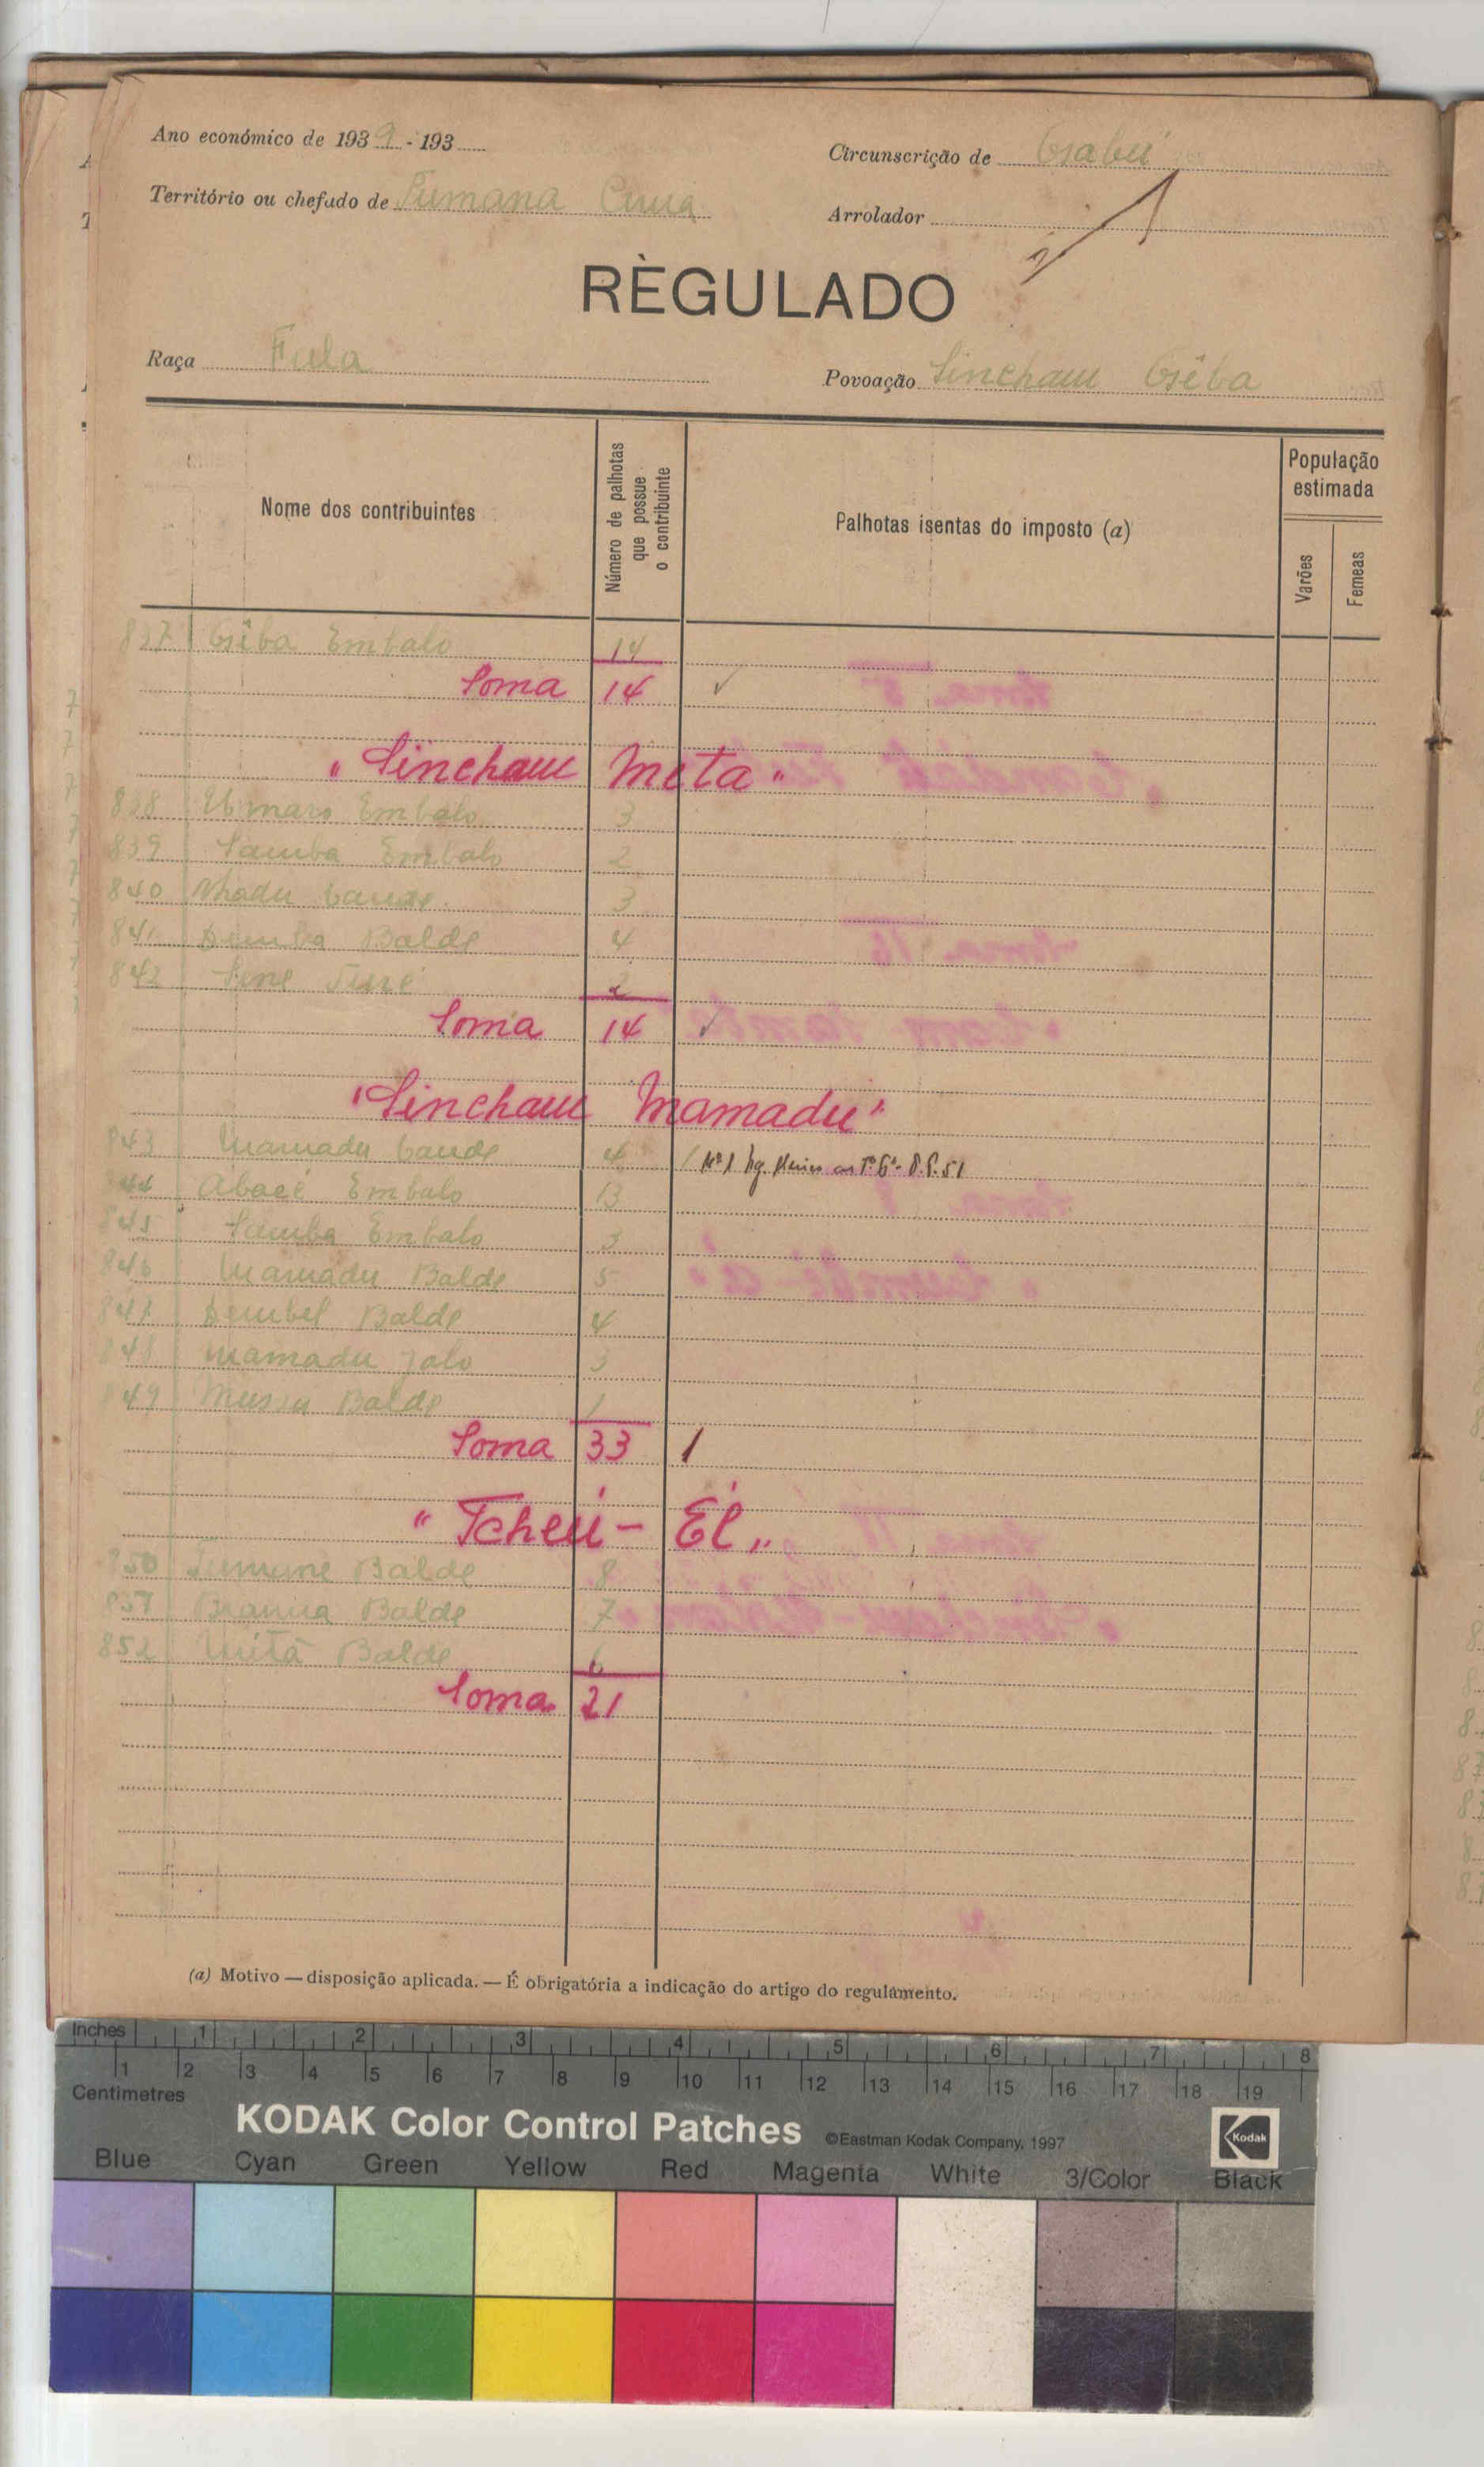 Ano económico de 1939-193
Circunscrição de Gabú
Território ou chefado de Tumana Cuua
Arrolador
RÈGULADO
Raça Fula
Povoação Sinchau Gêba
Nome dos contribuintes
Número de palhotas que possue o contribuinte
Palhotas isentas do imposto (a)
População estimada
Varões
Femeas
837 Gêba Embalo 14
Soma 14 ✓
"Sinchau Meta"
838 Umaro Embalo 3
839 Samba Embalo 2
840 Madu Cande 3
841 Demba Balde 4
842 Sene Turé 2
Soma 14 ✓
"Sinchau Mamadu"
843 Mamadu Cande 4 Nº 1
844 Abacé Embalo 13
845 Samba Embalo 3
846 Mamadu Balde 5
847 Dembel Balde 4
848 Mamadu Jalo 3
849 Mussa Balde 1
Soma 33 1
"Tcheú-Él"
850 Tumane Balde 8
851 Balde 7
852 Mitá Balde 6
Soma 21
(a) Motivo — disposição aplicada. — É obrigatória a indicação do artigo do regulamento.
Inches 1 2 3 4 5 6 7 8
1 2 3 4 5 6 7 8 9 10 11 12 13 14 15 16 17 18 19
Centimetres
KODAK Color Control Patches ©Eastman Kodak Company, 1997 Kodak
Blue Cyan Green Yellow Red Magenta White 3/Color Black